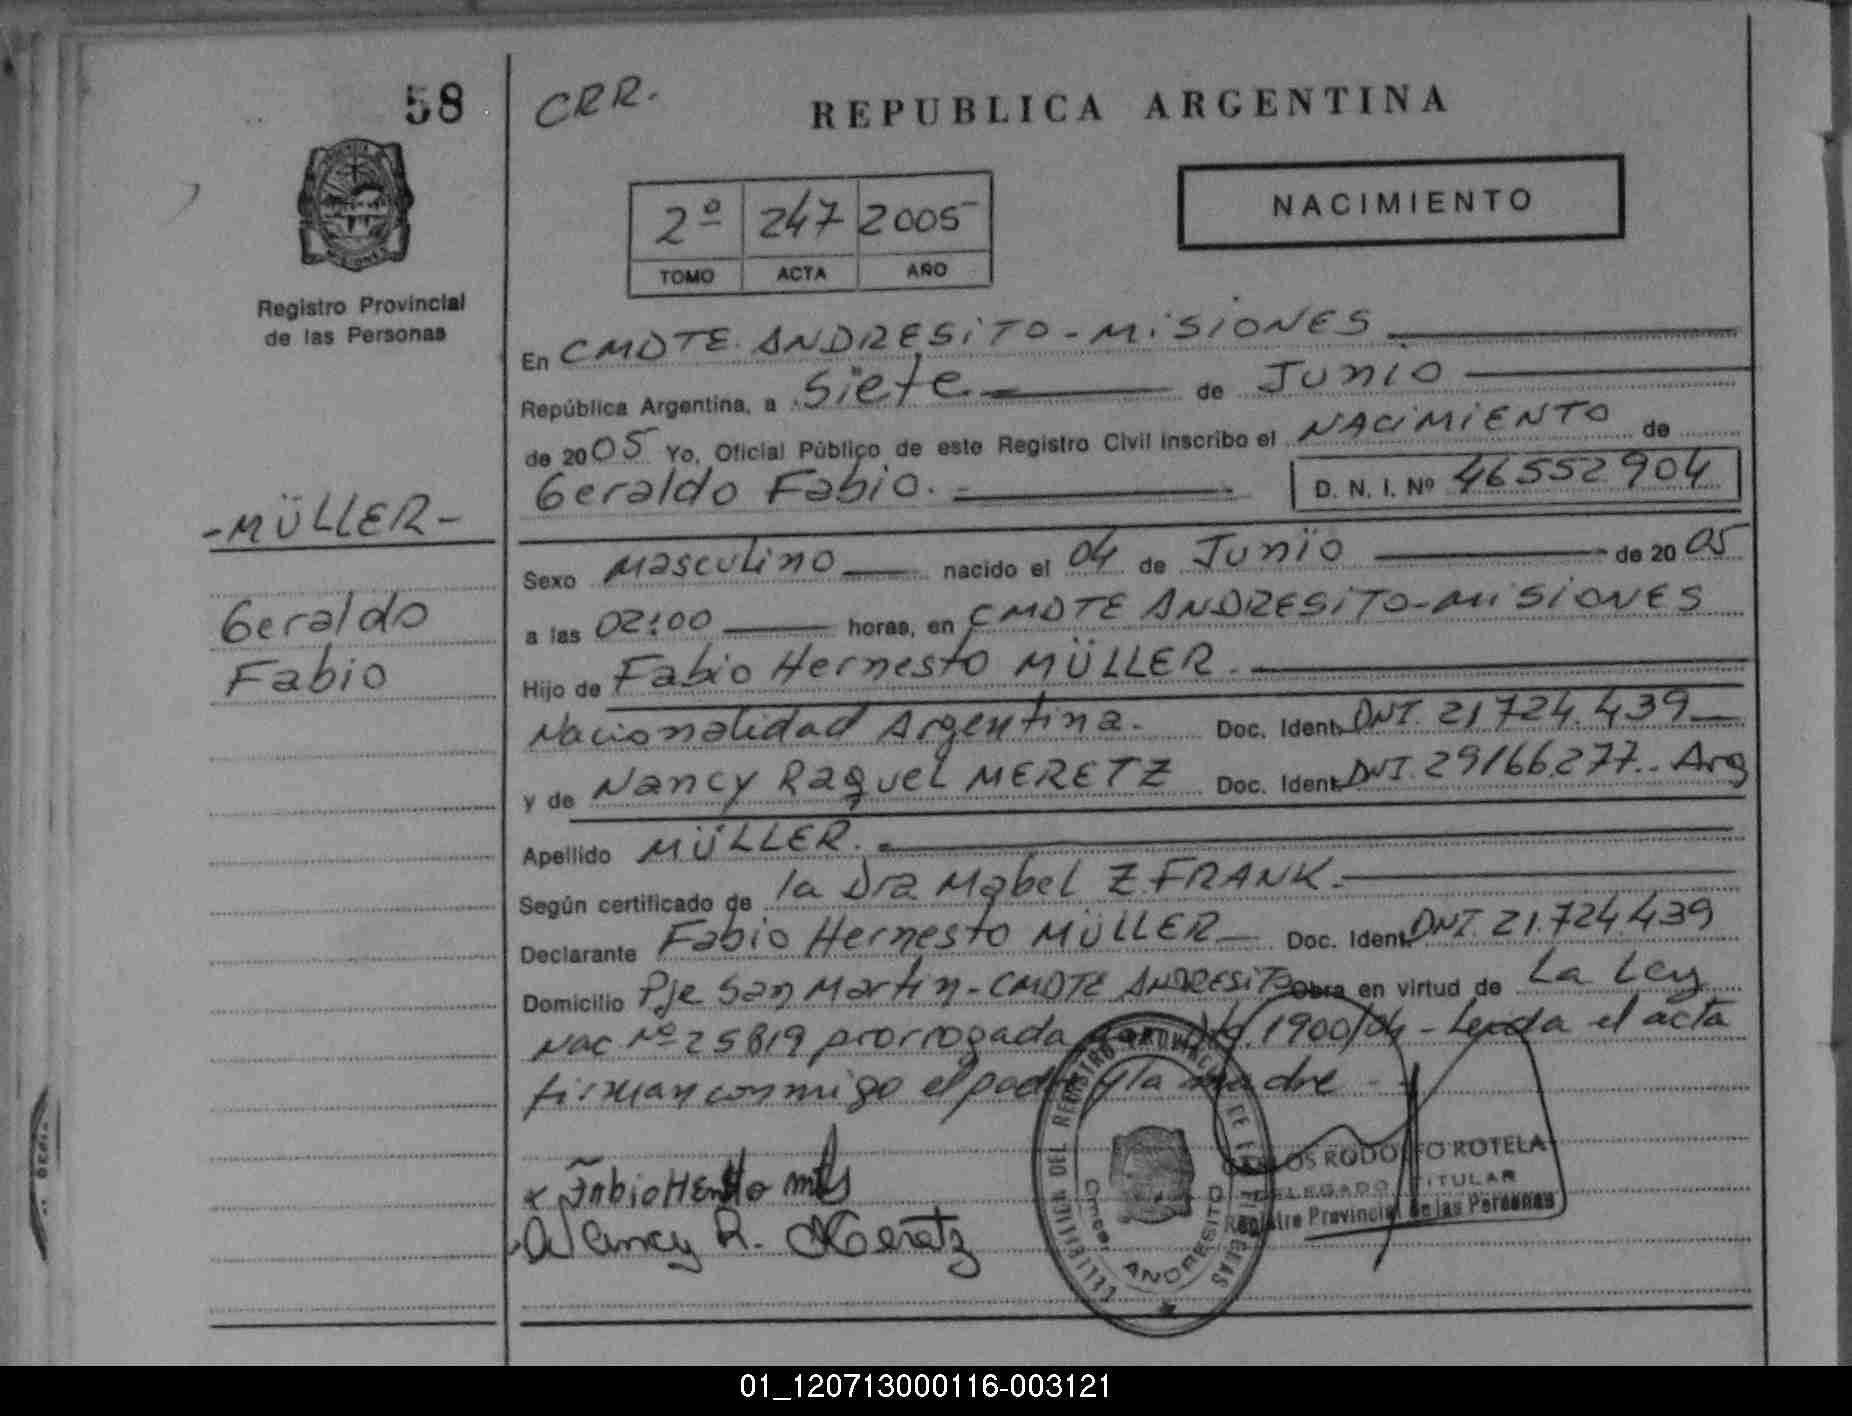 58
CRR.
REPUBLICA ARGENTINA
NACIMIENTO
2º 247 2005
TOMO ACTA AÑO
Registro Provincial
de las Personas
En CMDTE. ANDRESiTO - MiSiONES
República Argentina, a Siete de Junio
de 2005 Yo, Oficial Público de este Registro Civil inscribo el NACiMiENTO de
Geraldo Fabio. D. N. I. Nº 46552904
- MÜLLER -
Geraldo
Fabio
Sexo Masculino nacido el 04 de Junio de 2005
a las 02:00 horas, en CMDTE ANDRESiTO-MiSiONES
Hijo de Fabio Hernesto MÜLLER.
Nacionalidad Argentina. Doc. Ident. DNI. 21.724.439
y de Nancy Raquel MERETZ Doc. Ident. DNI. 29166.277.. Arg
Apellido MÜLLER.
Según certificado de la Dra Mabel Z. FRANK.
Declarante Fabio Hernesto MÜLLER Doc. Ident. DNI. 21.724.439
Domicilio Pje San Martin - CMDTE ANDRESiTO Obra en virtud de La Ley
Nac Nº 25819 prorrogada 1900/04 - Leida el acta
firman conmigo el padre y la madre.-
x Fabio
Nancy R. Meretz
DEL REGISTRO PROVINCIAL DE
ANDRESITO
CARLOS RODOLFO ROTELA
DELEGADO TITULAR
Registro Provincial de las Personas
01_120713000116-003121